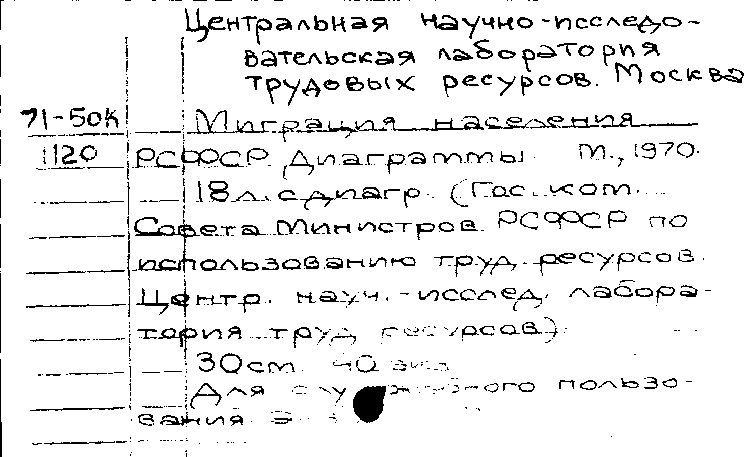 Центральная научно-исследо-
вательская лаборатория
трудовых ресурсов. Москва
71-50К Миграция населения
1120 РСФСР. Диаграммы. М., 1970.
18 л. с диагр. (Гос. ком.
Совета Министров РСФСР по
использованию труд. ресурсов.
Центр. науч.-исслед. лабора-
тория труд. ресурсов).
30 см. 40 экз.
Для служебного пользо-
вания